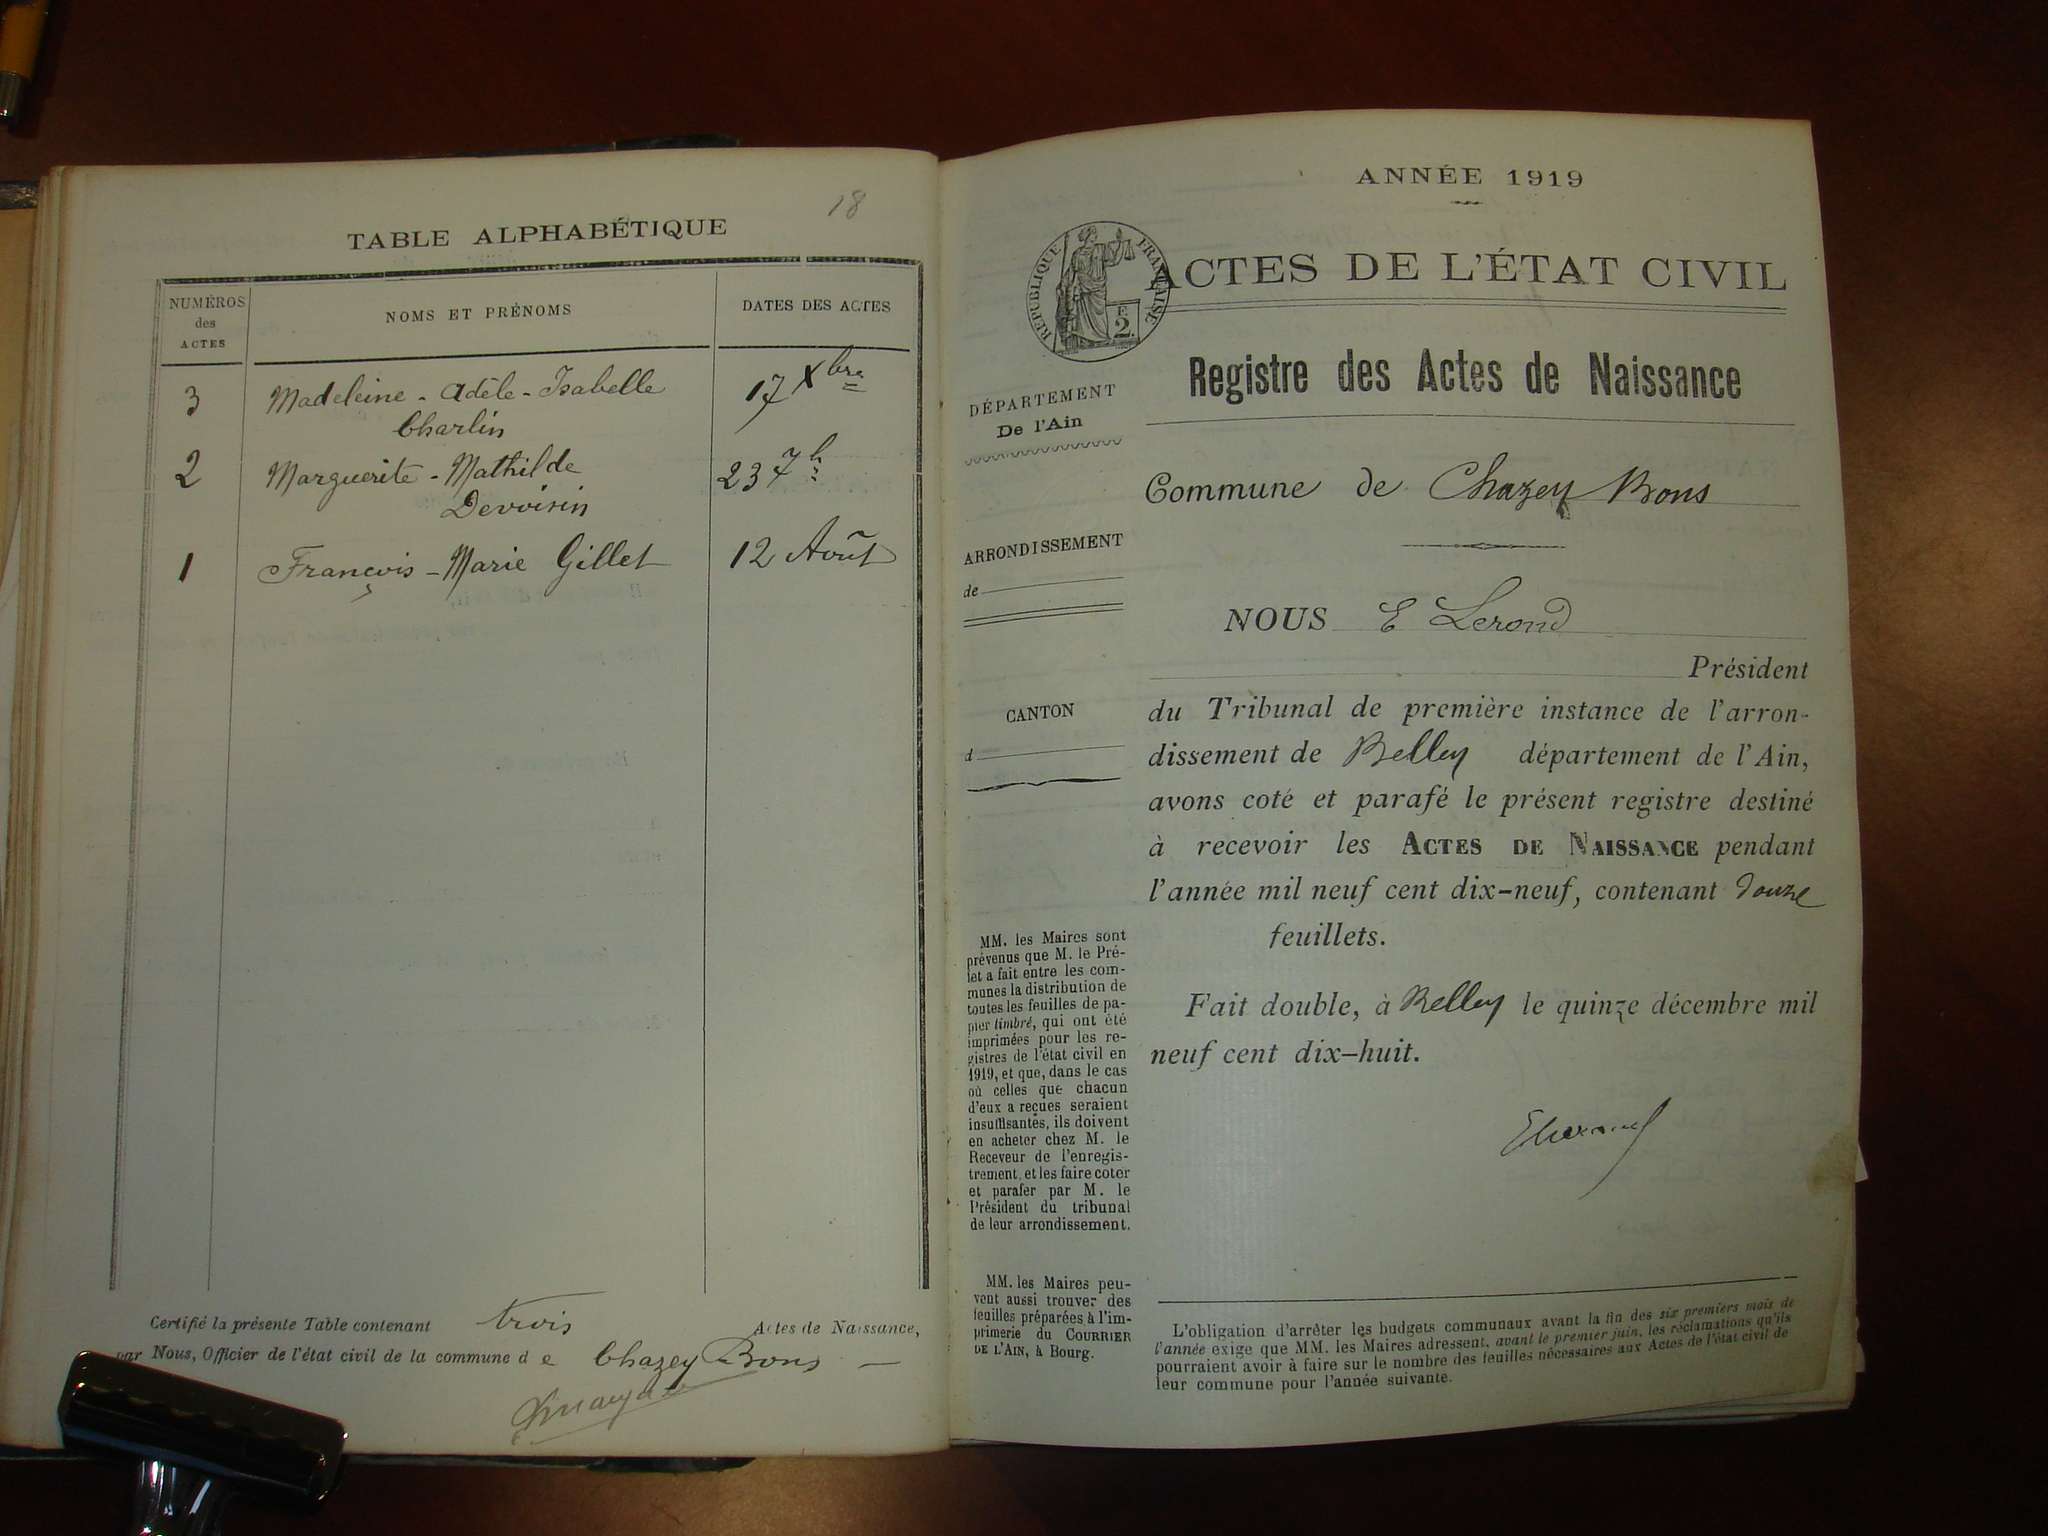 18
TABLE ALPHABÉTIQUE
NUMÉROS
des
ACTES
NOMS ET PRÉNOMS
DATES DES ACTES
3 Madeleine - Adèle - Isabelle 17 Xbre
Charlin
2 Marguerite - Mathilde 23 7b
Devoisin
1 François - Marie Gillet 12 Août
Certifié la présente Table contenant trois Actes de Naissance,
par Nous, Officier de l'état civil de la commune de Chazey Bons
ANNÉE 1919
ACTES DE L'ÉTAT CIVIL
RÉPUBLIQUE FRANÇAISE
2
F.
Registre des Actes de Naissance
DÉPARTEMENT
De l'Ain
Commune de Chazey Bons
ARRONDISSEMENT
de
NOUS E Lerond
Président
CANTON
d
du Tribunal de première instance de l'arron-
dissement de Belley département de l'Ain,
avons coté et parafé le présent registre destiné
à recevoir les ACTES DE NAISSANCE pendant
l'année mil neuf cent dix-neuf, contenant douze
feuillets.
Fait double, à Belley le quinze décembre mil
neuf cent dix-huit.
MM. les Maires sont
prévenus que M. le Pré-
fet a fait entre les com-
munes la distribution de
toutes les feuilles de pa-
pier timbré, qui ont été
imprimées pour les re-
gistres de l'état civil en
1919, et que, dans le cas
où celles que chacun
d'eux a reçues seraient
insuffisantes, ils doivent
en acheter chez M. le
Receveur de l'enregis-
trement, et les faire coter
et parafer par M. le
Président du tribunal
de leur arrondissement.
MM. les Maires peu-
vent aussi trouver des
feuilles préparées à l'im-
primerie du COURRIER
DE L'AIN, à Bourg.
L'obligation d'arrêter les budgets communaux avant la fin des six premiers mois de
l'année exige que MM. les Maires adressent, avant le premier juin, les réclamations qu'ils
pourraient avoir à faire sur le nombre des feuilles nécessaires aux Actes de l'état civil de
leur commune pour l'année suivante.